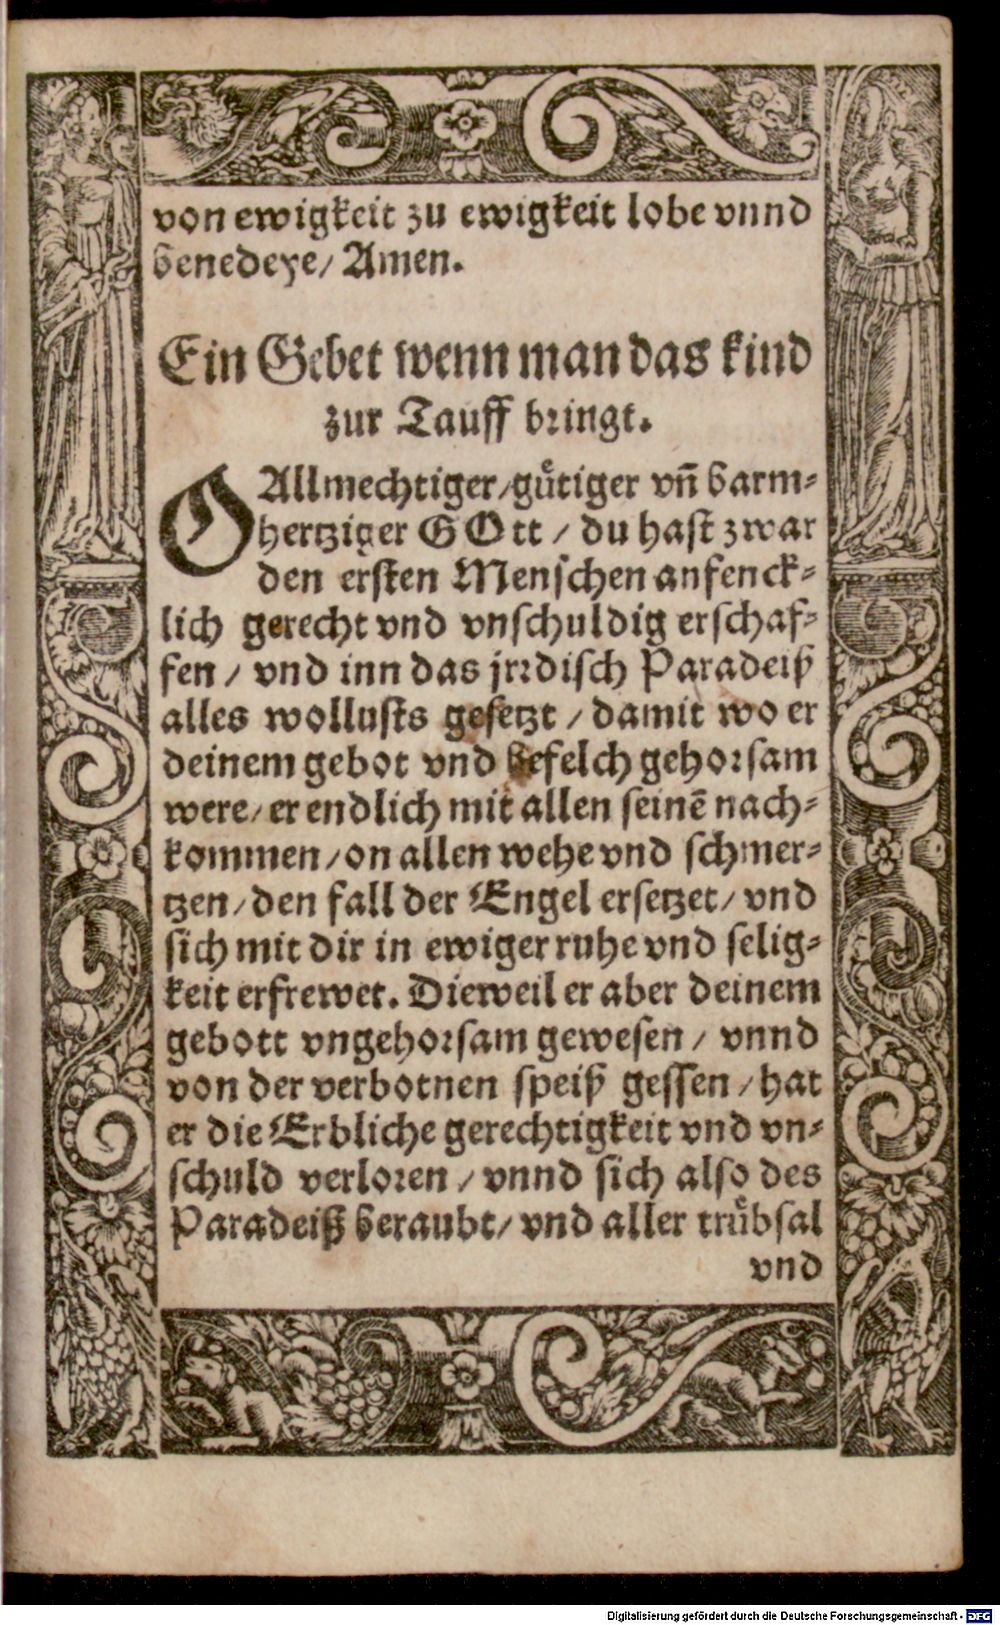 von ewigkeit zu ewigkeit lobe vnnd
benedeye/ Amen.
Ein Gebet wenn man das kind
zur Tauff bringt.
O Allmechtiger/gütiger vñ barm-
hertziger GOtt / du hast zwar
den ersten Menschen anfenck-
lich gerecht vnd vnschuldig erschaf-
fen / vnd inn das jrrdisch Paradeiß
alles wollusts gesetzt / damit wo er
deinem gebot vnd befelch gehorsam
were/ er endlich mit allen seinē nach-
kommen /on allen wehe vnd schmer-
tzen/den fall der Engel ersetzet/ vnd
sich mit dir in ewiger ruhe vnd selig-
keit erfrewet. Dieweil er aber deinem
gebott vngehorsam gewesen / vnnd
von der verbotnen speiß gessen / hat
er die Erbliche gerechtigkeit vnd vn-
schuld verloren / vnnd sich also des
Paradeiß beraubt/ vnd aller trübsal
vnd
Digitalisierung gefördert durch die Deutsche Forschungsgemeinschaft - DFG